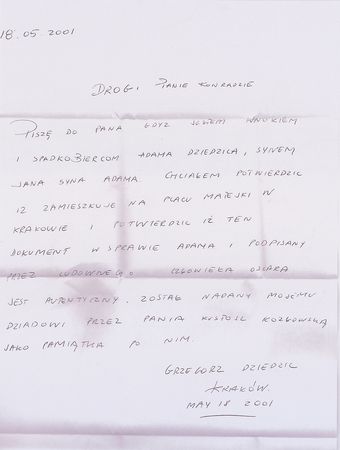 18.05.2001
DROGI PANIE KONRADZIE
PISZĘ DO PANA GDYŻ JESTEM WNUKIEM
I SPADKOBIERCOM ADAMA DZIEDZICA, SYNEM
JANA SYNA ADAMA. CHCIAŁEM POTWIERDZIĆ
IŻ ZAMIESZKUJE NA PLACU MATEJKI W
KRAKOWIE I POTWIERDZIĆ IŻ TEN
DOKUMENT W SPRAWIE ADAMA I PODPISANY
PRZEZ CZŁOWIEKA OSKARA
JEST AUTENTYCZNY. ZOSTAŁ NADANY MOJEMU
DZIADOWI PRZEZ PANIĄ KOZŁOWSKĄ
JAKO PAMIĄTKA PO NIM.
GRZEGORZ DZIEDZIC
KRAKÓW.
MAY 18 2001